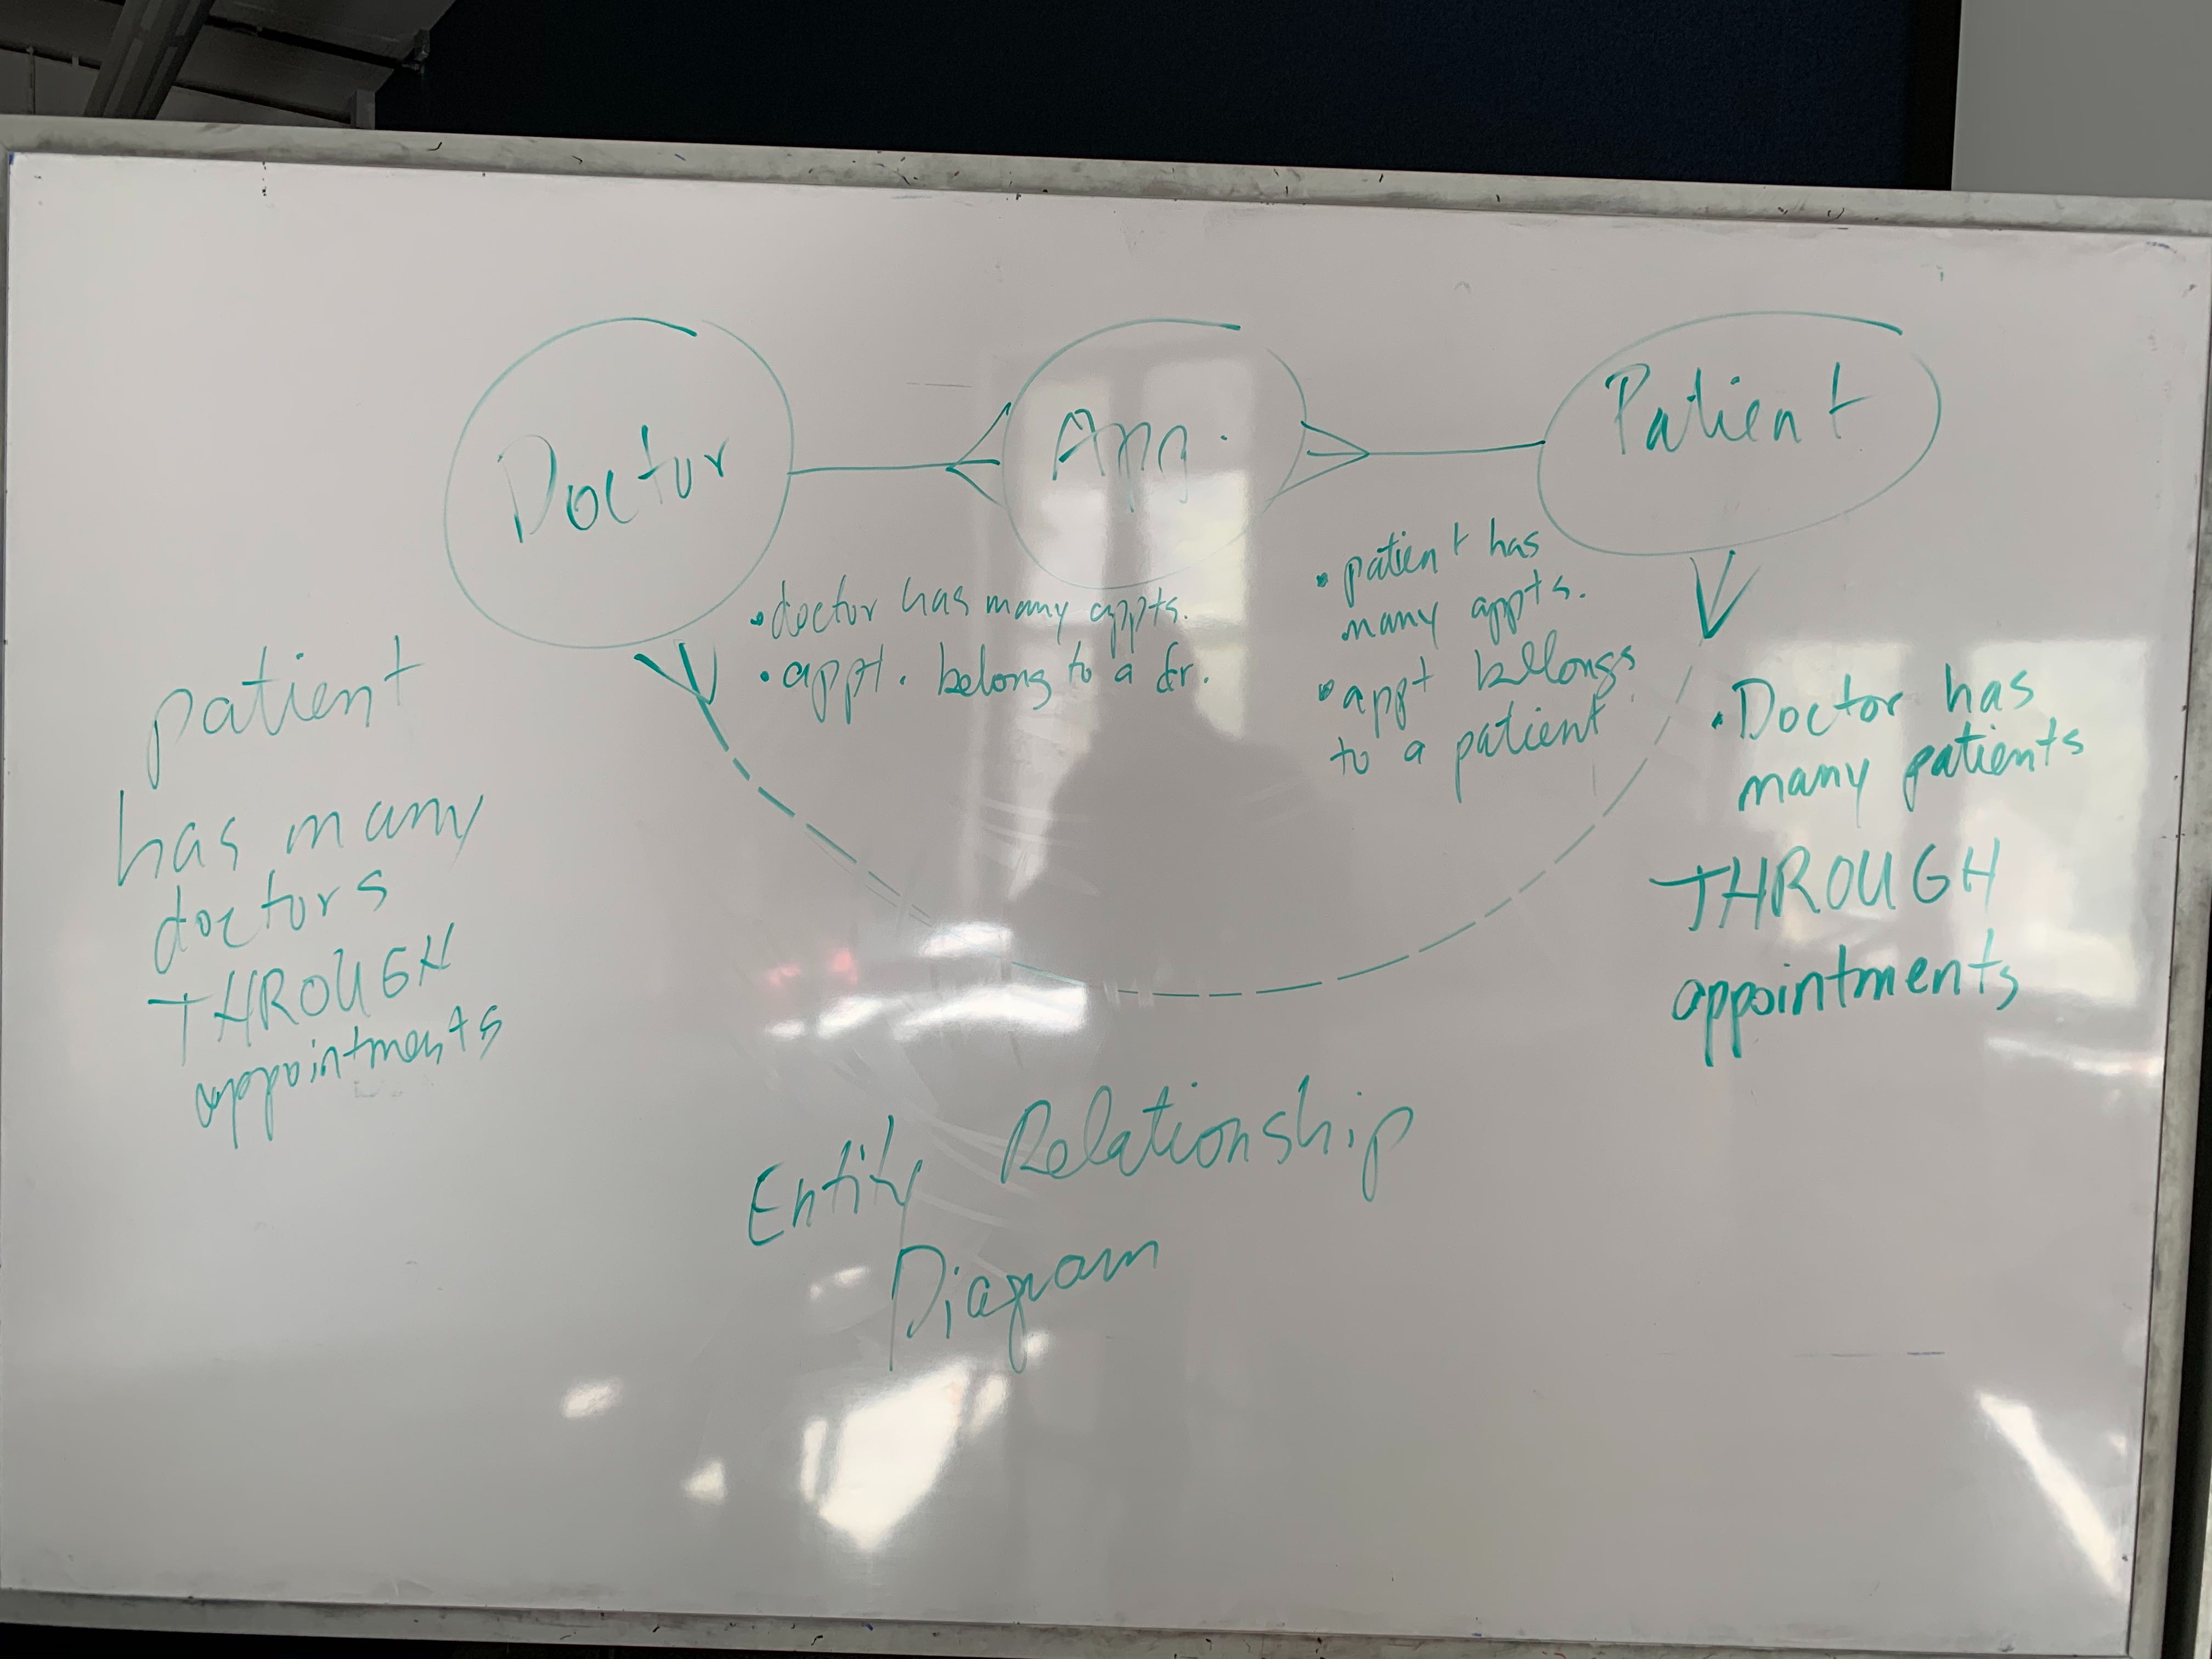 Doctor
App.
Patient
• doctor has many appts.
• appt. belong to a dr.
• patient has
many appts.
• appt bellongs
to a patient
patient
has many
doctors
THROUGH
appointments
• Doctor has
many patients
THROUGH
appointments
Entity Relationship
Diagram